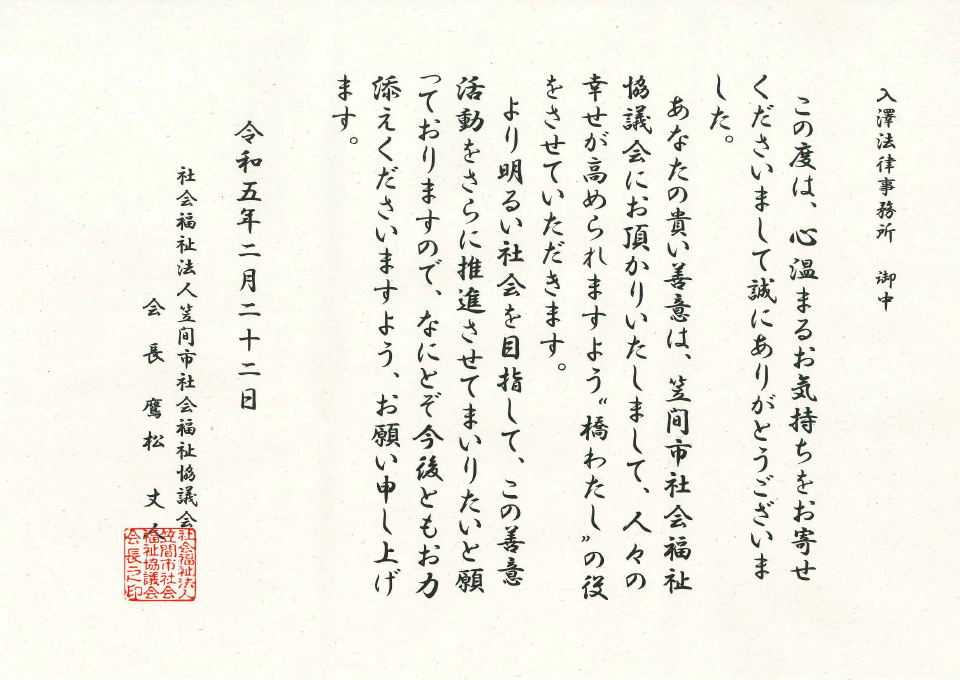 入澤法律事務所 御中
この度は、心温まるお気持ちをお寄せ
くださいまして誠にありがとうございま
した。
あなたの貴い善意は、笠間市社会福祉
協議会にお頂かりいたしまして、人々の
幸せが高められますよう〝橋わたし〟の役
をさせていただきます。
より明るい社会を目指して、この善意
活動をさらに推進させてまいりたいと願
っておりますので、なにとぞ今後ともお力
添えくださいますよう、お願い申し上げ
ます。
令和五年二月二十二日
社会福祉法人笠間市社会福祉協議会
会長 鷹松 丈人
社会福祉法人
笠間市社会
福祉協議会
会長之印